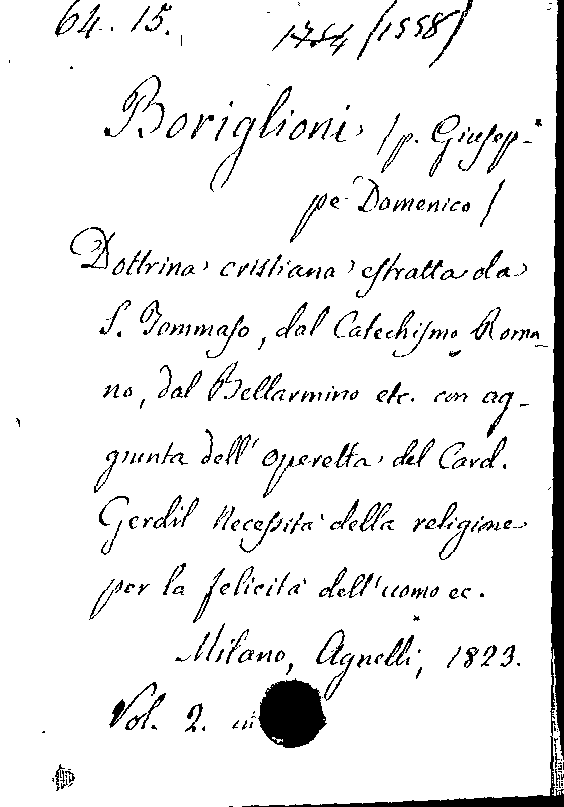 64. 15. 1754 (1558)
Boriglioni / p. Giusep-
pe Domenico /
Dottrina cristiana estratta da
S. Tommaso, dal Catechismo Roma-
no, dal Bellarmino etc. con ag-
giunta dell' operetta del Card.
Gerdil Necessità della religione
per la felicità dell'uomo ec.
Milano, Agnelli, 1823.
Vol. 2. in